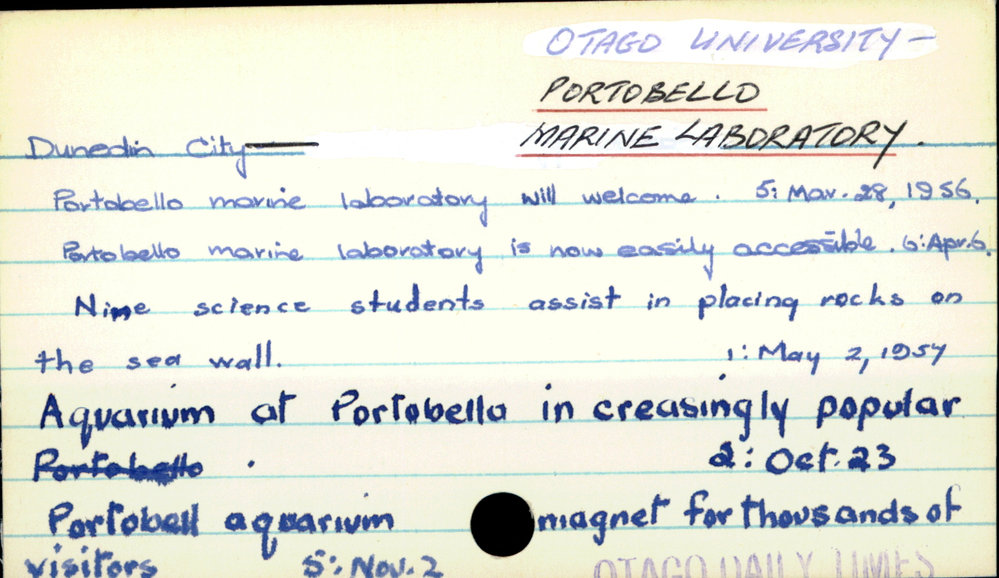 OTAGO UNIVERSITY –
PORTOBELLO
Dunedin City — MARINE LABORATORY.
Portobello marine laboratory will welcome. 5: Mar. 28, 1956.
Portobello marine laboratory is now easily accessible. 6: Apr. 6.
Nine science students assist in placing rocks on
the sea wall. 1: May 2, 1957
Aquarium at Portobello in creasingly popular
Portobello . 2: Oct. 23
Portobell aquarium magnet for thousands of
visitors 5: Nov. 2 OTAGO DAILY TIMES